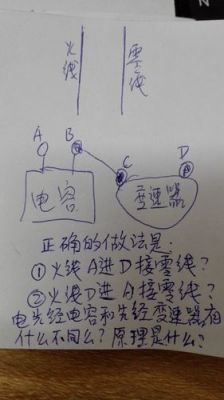 火线 零线
A B
C D
电容 变速器
正确的做法是.
①火线A进D接零线?
②火线D进A接零线?
电先经电容和先经变速器,有
什么不同么?原理是什么?